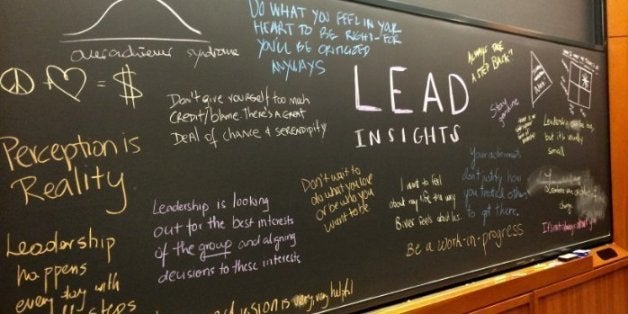 overachiever syndrome
DO WHAT YOU FEEL IN YOUR
HEART TO BE RIGHT-FOR
YOU'LL BE CRITICIZED
ANYWAYS
ALWAYS TAKE
A STEP BACK"
+ = $
LEAD
INSIGHTS
Don't give yourself too much
credit/blame. there's a great
DEAL OF CHANCE & SERENDIPITY
Stay
genuine
Leadership
but it's usually
small
Perception is
Reality
Your achievements
don't justify how
you treated others
to get there.
Don't wait to
do what you love
or be who you
want to be
I want to feel
about my life the way
feels about his.
Leadership is looking
out for the best interests
of the group and aligning
decisions to these interests
Be a work-in-progress
It's not always about you
Leadership
happens
every day with
steps
is very, very helpful